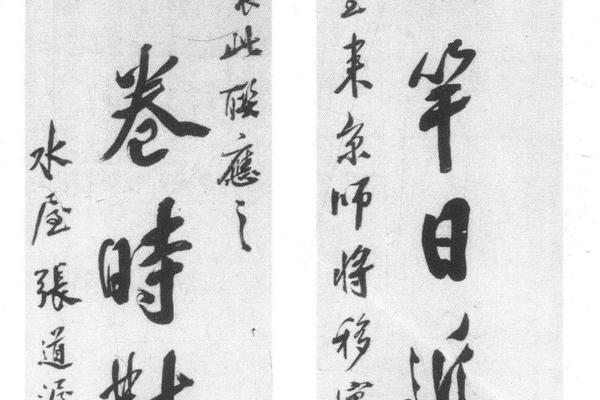 竿日
來京師將移寓
此聯應之
卷時
水屋張道渥